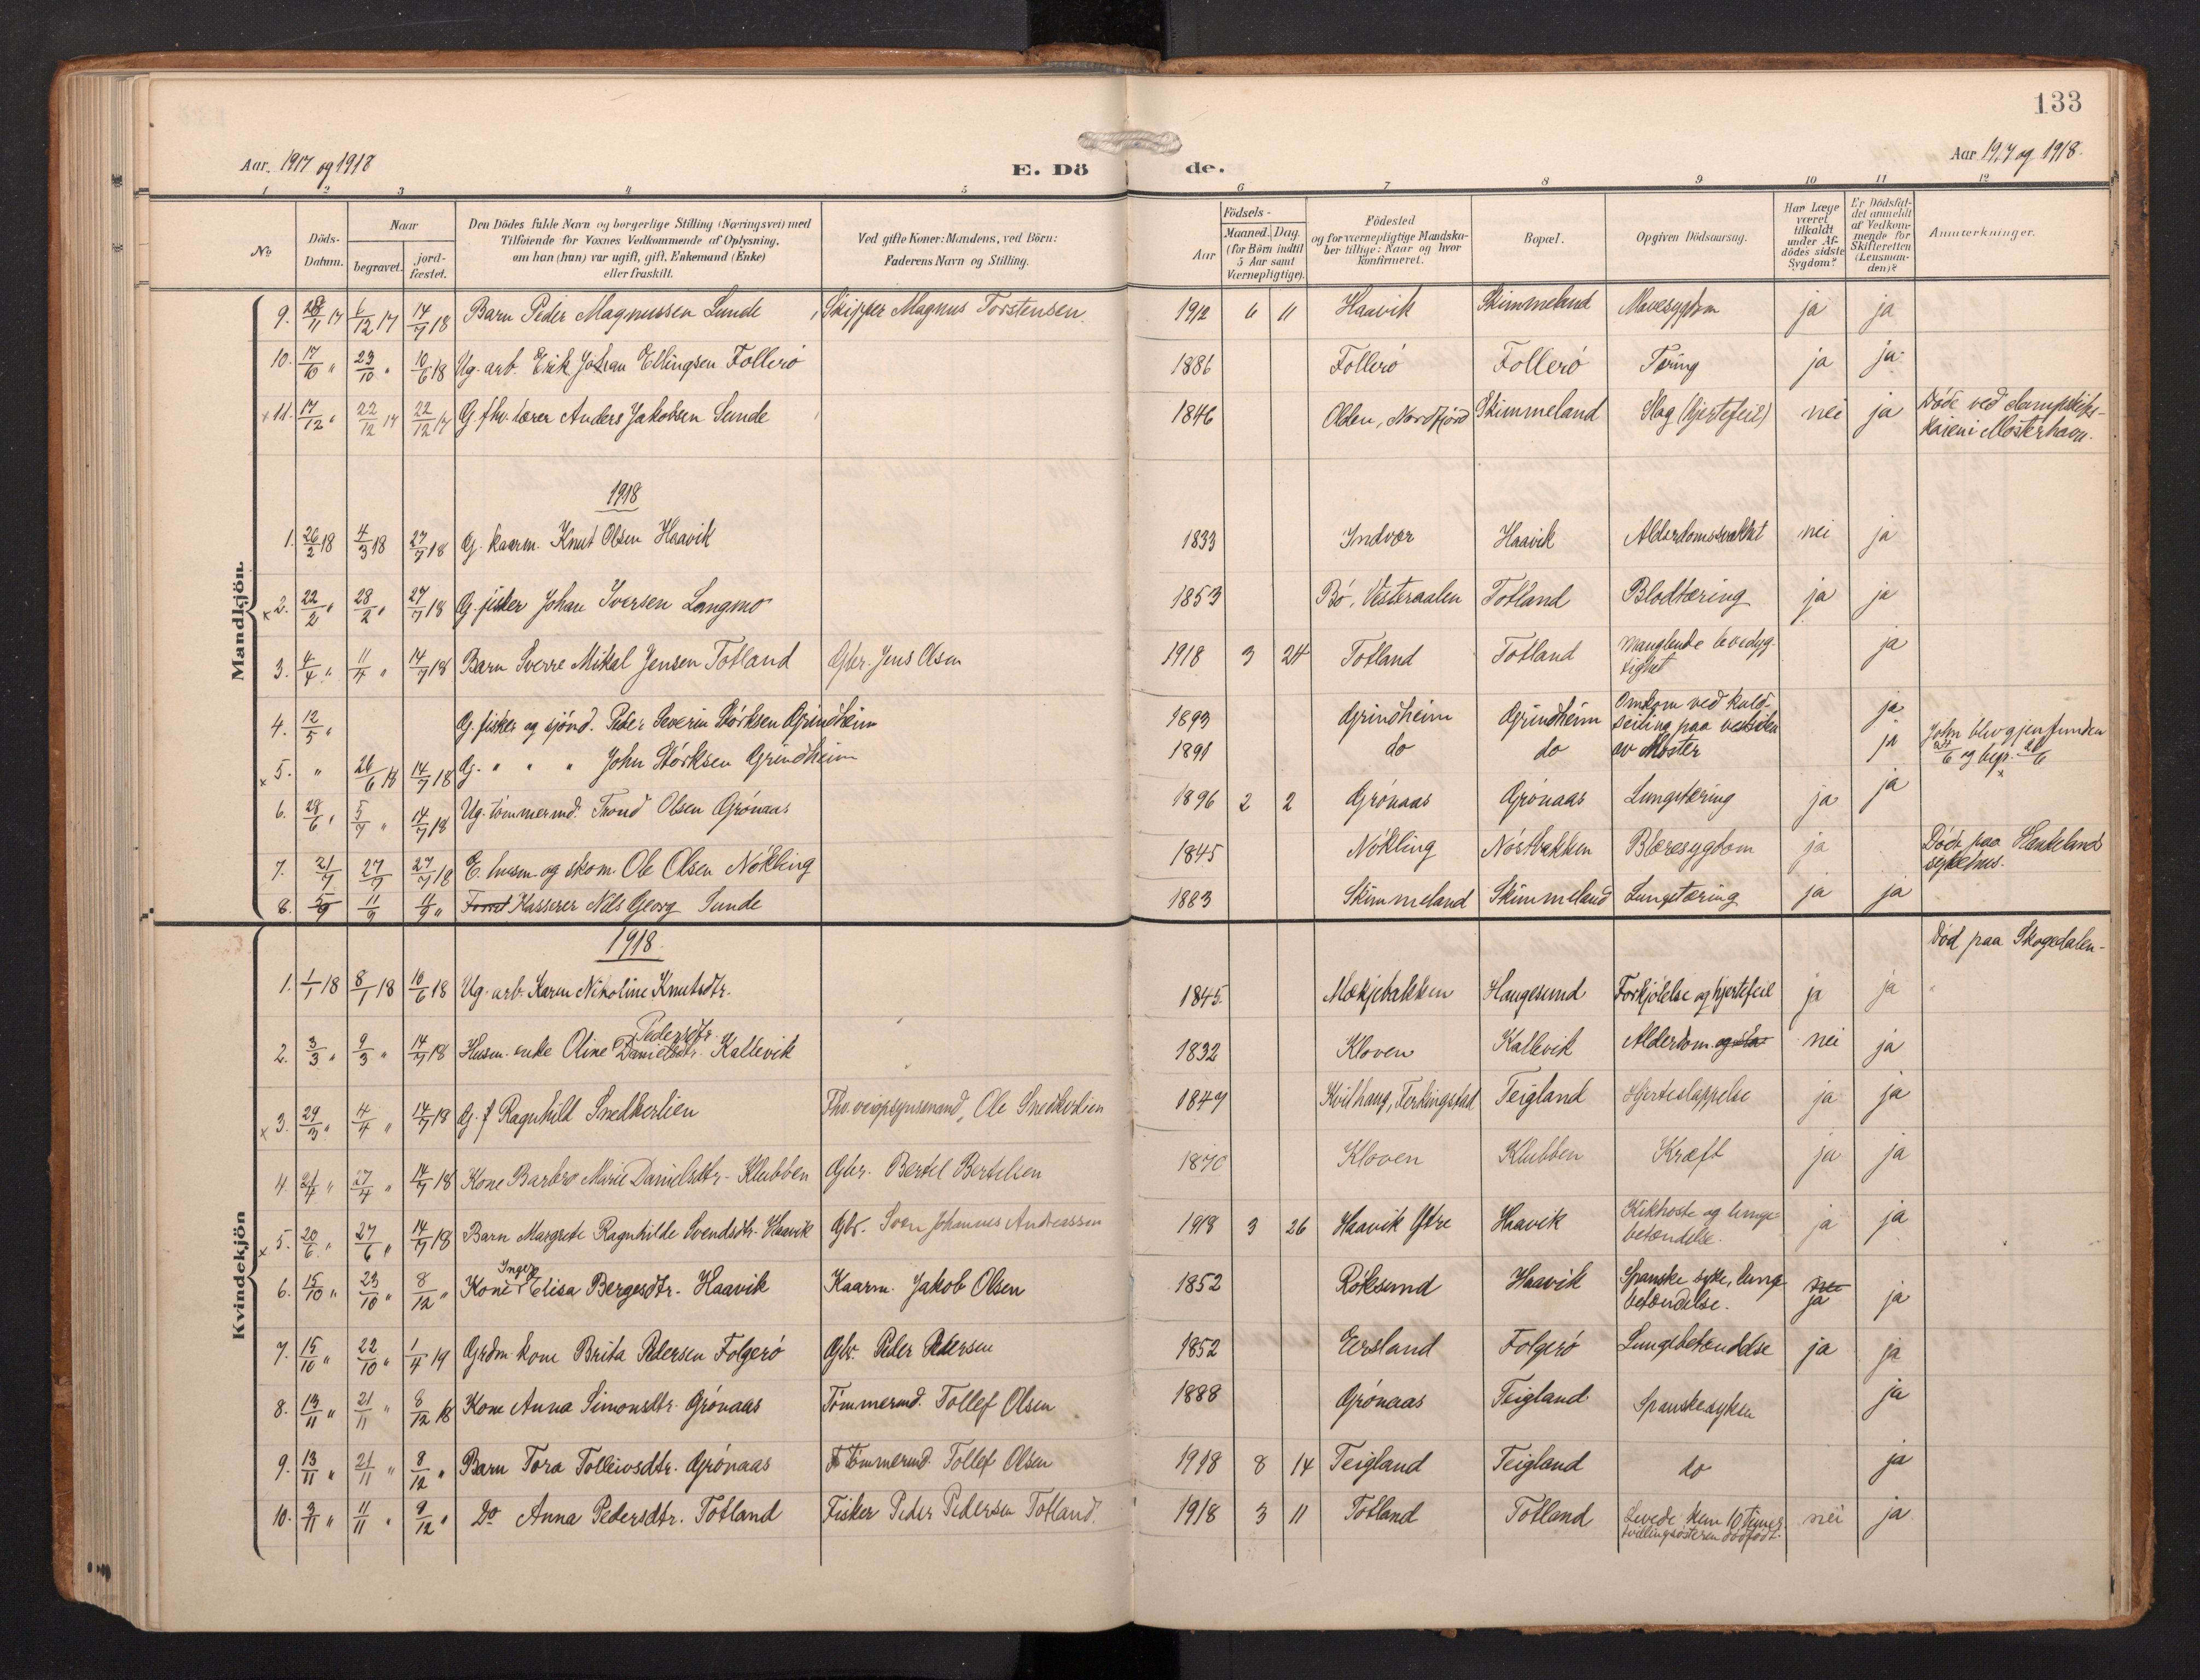 133
Aar. 1917 og 1918
E. Dö de.
Aar 1917 og 1918.
1 2 3 4 5 6 7 8 9 10 11 12
No
Döds-Datum.
Naar
begravet.
jord-fæstet.
Den Dödes fulde Navn og borgerlige Stilling (Næringsvei) med
Tilföiende for Voxnes Vedkommende af Oplysning,
om han (hun) var ugift, gift, Enkemand (Enke)
eller fraskilt.
Ved gifte Koner: Mandens, ved Börn:
Faderens Navn og Stilling.
Födsels-
Aar
Maaned. Dag.
(for Börn indtil
5 Aar samt
Værnepligtige).
Födested
og for værnepligtige Mandska-
ber tillige: Naar og hvor
konfirmeret.
Bopæl.
Opgiven Dödsaarsag.
Har Læge
været
tilkaldt
under Af-
dödes sidste
Sygdom?
Er Dödsfal-
det anmeldt
af Vedkom-
mende for
Skifteretten
(Lensman-
den)?
Anmærkninger.
Mandkjön.
9. 28/11 17 6/12 17 14/7 18 Barn Peder Magnussen Sunde Skipper Magnus Torstensen. 1912 6 11 Haavik Skimmeland Mavesygdom ja ja
10. 17/10 " 23/10 " 10/6 18 Ug. arb. Erik Johan Ellingsen Follerö 1886 Follerö Follerö Tæring ja ja
x 11. 17/12 " 22/12 17 22/12 17 G. fhv. lærer Anders Jakobsen Sunde 1846 Olden, Nordfjord Skimmeland Slag (hjertefeil) nei ja Döde ved dampskibs-
kaien i Mosterhavn.
1918
1. 26/2 18 4/3 18 27/7 18 G. kaarm. Knut Olsen Haavik 1833 Indvær Haavik Alderdomssvakhet nei ja
x 2. 22/2 " 28/2 " 27/7 18 G. fisker Johan Iversen Langmo 1853 Bö, Vesteraalen Totland Blodtæring ja ja
3. 4/4 " 11/4 " 14/7 18 Barn Sverre Mikal Jensen Totland Gbr. Jens Olsen 1918 3 24 Totland Totland manglende levedyg-
tighet ja
4. 12/5 " G. fisker og sjömd. Peder Severin Störksen Grindheim 1893 Grindheim Grindheim Omkom ved kuld-
seiling paa vestsiden ja
x 5. " 26/6 18 14/7 18 G. " " " John Störksen Grindheim 1891 do do av Moster ja John blev gjenfunden
og begr. 26/6
6. 28/6 " 5/7 " 14/7 18 Ug. tömmermd. Trond Olsen Grönaas 1896 2 2 Grönaas Grönaas Lungetæring ja ja
7. 21/7 27/7 27/7 18 E. husm. og skom. Ole Olsen Nökling 1845 Nökling Nöstbakken Blæresygdom ja Död paa Haukelands
sykehus.
8. 5/9 11/9 11/9 " Kasserer Nils Georg Sunde 1883 Skimmeland Skimmeland Lungetæring ja ja
Kvindekjön
1918.
1. 1/1 18 8/1 18 10/6 18 Ug. arb. Karen Nikoline Knutsdtr. 1845 Mækjebakken Haugesund Forkjölelse og hjertefeil ja ja Död paa Skogedalen-
2. 3/3 " 9/3 " 14/7 18 Husm. enke Oline Danielsdtr. Pedersdtr. Kallevik 1832 Kloven Kallevik Alderdom nei ja
x 3. 29/3 " 4/4 " 14/7 18 G. f Ragnhild Snedkerlien Fhv. veiopsynsmand, Ole Snedkerlien 1847 Kvilhaug, Ferkingstad Teigland Hjerteslappelse ja ja
4. 21/4 " 27/4 " 14/7 18 Kone Barbro Marie Danielsdtr. Klubben Gbr. Bertel Bertelsen 1870 Kloven Klubben Kræft ja ja
x 5. 20/6 " 27/6 " 14/7 18 Barn Margrete Ragnhilde Svendsdtr. Haavik Gbr. Sven Johannes Andreassen 1918 3 26 Haavik Ytre Haavik Kikhoste og lunge-
betændelse. ja ja
6. 15/10 " 23/10 " 8/12 " Kone Inger Elisa Bergesdtr. Haavik Kaarm. Jakob Olsen 1852 Röksund Haavik Spanske syke, lunge-
betændelse. ja ja
7. 15/10 " 22/10 " 1/4 19 Grdm. kone Brita Pedersen Folgerö Gbr. Peder Pedersen 1852 Eersland Folgerö Lungebetændelse ja ja
8. 13/11 " 21/11 " 8/12 18 Kone Anna Simonsdtr. Grönaas Tömmermd. Tollef Olsen 1888 Grönaas Teigland Spanskesyken ja
9. 13/11 " 21/11 " 8/12 " Barn Tora Tolleivsdtr. Grönaas Tömmermd. Tollef Olsen 1918 8 14 Teigland Teigland do ja
10. 3/11 " 11/11 " 9/12 " Do Anna Pedersdtr. Totland Fisker Peder Pedersen Totland. 1918 3 11 Totland Totland Levede kun 10 timer
tvillingsösteren dödfödt. nei ja